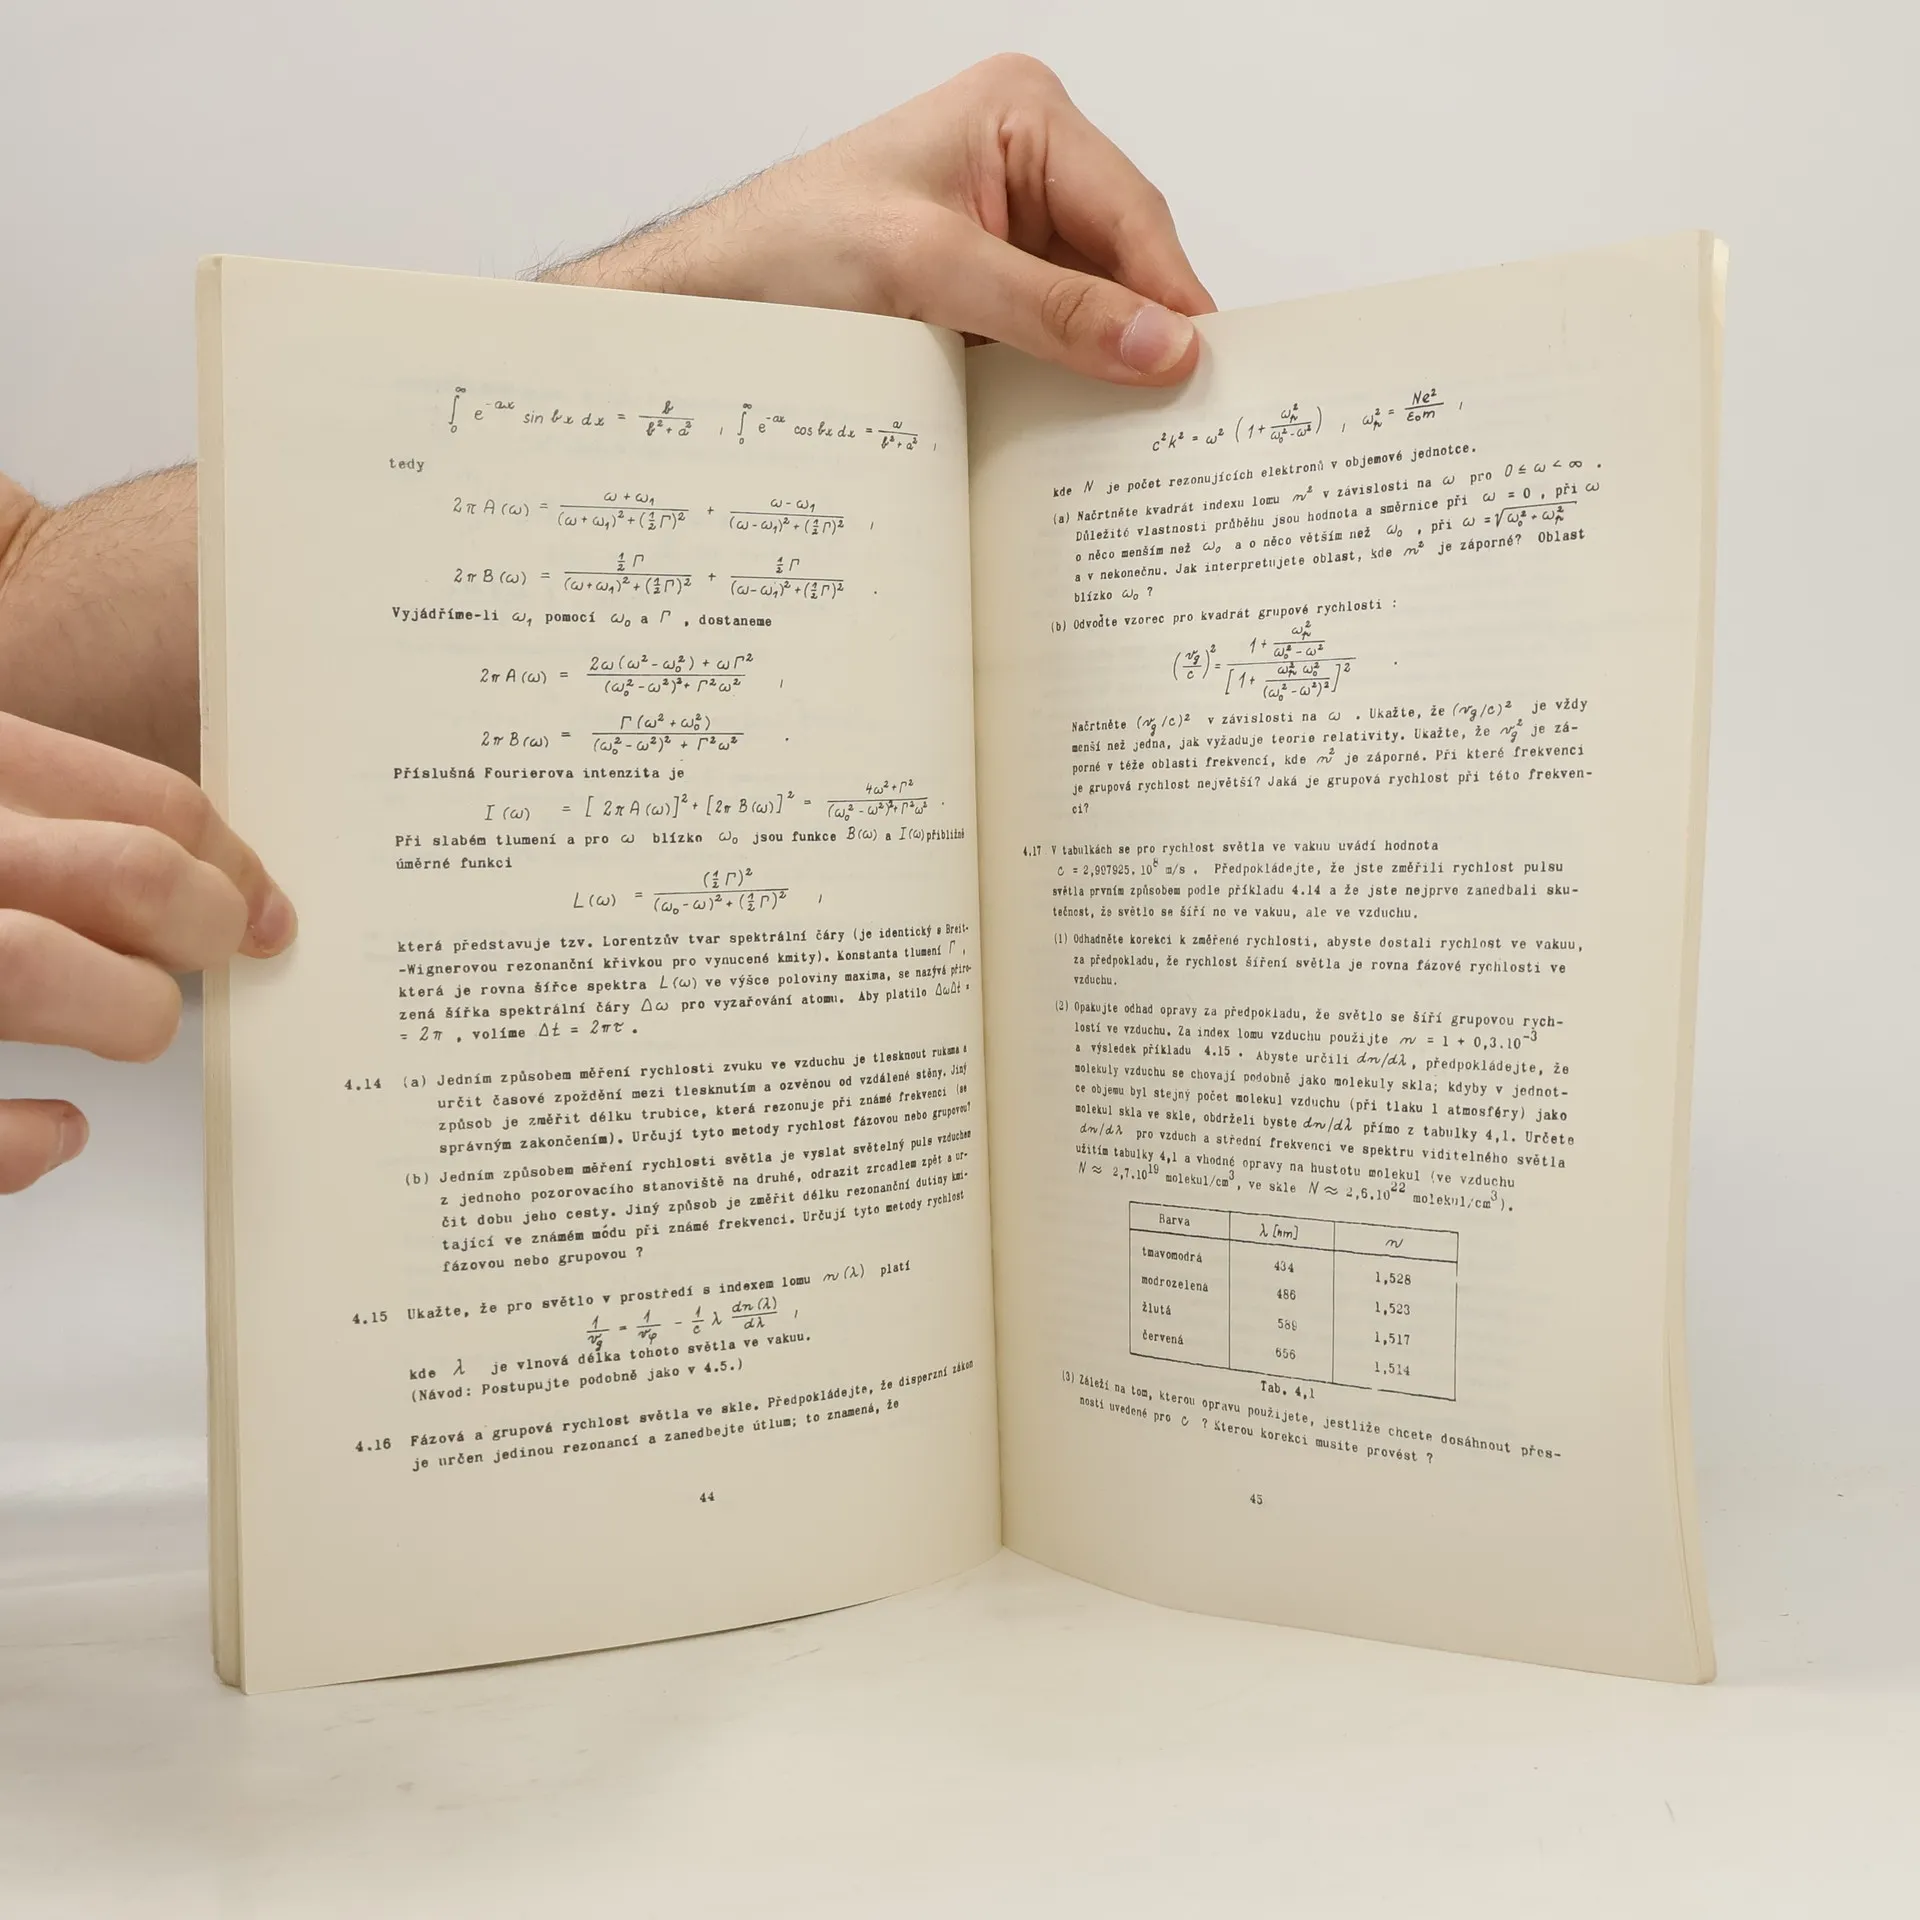 ∫₀^∞ e^{-ax} sin bx dx = b/(b²+a²) , ∫₀^∞ e^{-ax} cos bx dx = a/(b²+a²) ,
tedy
2π A(ω) = (ω+ω₁)/((ω+ω₁)²+(½Γ)²) + (ω-ω₁)/((ω-ω₁)²+(½Γ)²) ,
2π B(ω) = ½Γ/((ω+ω₁)²+(½Γ)²) + ½Γ/((ω-ω₁)²+(½Γ)²) .
Vyjádříme-li ω₁ pomocí ω₀ a Γ , dostaneme
2π A(ω) = (2ω(ω²-ω₀²)+ωΓ²)/((ω₀²-ω²)²+Γ²ω²) ,
2π B(ω) = Γ(ω²+ω₀²)/((ω₀²-ω²)²+Γ²ω²) .
Příslušná Fourierova intenzita je
I(ω) = [2πA(ω)]²+[2πB(ω)]² = (4ω²+Γ²)/((ω₀²-ω²)²+Γ²ω²) .
Při slabém tlumení a pro ω blízko ω₀ jsou funkce B(ω) a I(ω) přibližně
úměrné funkci
L(ω) = (½Γ)²/((ω₀-ω)²+(½Γ)²) ,
která představuje tzv. Lorentzův tvar spektrální čáry (je identický s Breit-
-Wignerovou rezonanční křivkou pro vynucené kmity). Konstanta tlumení Γ ,
která je rovna šířce spektra L(ω) ve výšce poloviny maxima, se nazývá přiro-
zená šířka spektrální čáry Δω pro vyzařování atomu. Aby platilo ΔωΔt =
= 2π , volíme Δt = 2πτ .
4.14 (a) Jedním způsobem měření rychlosti zvuku ve vzduchu je tlesknout rukama a
určit časové zpoždění mezi tlesknutím a ozvěnou od vzdálené stěny. Jiný
způsob je změřit délku trubice, která rezonuje při známé frekvenci (se
správným zakončením). Určují tyto metody rychlost fázovou nebo grupovou?
(b) Jedním způsobem měření rychlosti světla je vyslat světelný puls vzduchem
z jednoho pozorovacího stanoviště na druhé, odrazit zrcadlem zpět a ur-
čit dobu jeho cesty. Jiný způsob je změřit délku rezonanční dutiny kmi-
tající ve známém módu při známé frekvenci. Určují tyto metody rychlost
fázovou nebo grupovou ?
4.15 Ukažte, že pro světlo v prostředí s indexem lomu n(λ) platí
1/v_g = 1/v_φ - (1/c) λ dn(λ)/dλ ,
kde λ je vlnová délka tohoto světla ve vakuu.
(Návod: Postupujte podobně jako v 4.5.)
4.16 Fázová a grupová rychlost světla ve skle. Předpokládejte, že disperzní zákon
je určen jedinou rezonancí a zanedbejte útlum; to znamená, že
44
c²k² = ω² (1+ω_p²/(ω₀²-ω²)) , ω_p² = Ne²/(ε₀m) ,
kde N je počet rezonujících elektronů v objemové jednotce.
(a) Načrtněte kvadrát indexu lomu n² v závislosti na ω pro 0 ≤ ω < ∞ .
Důležité vlastnosti průběhu jsou hodnota a směrnice při ω = 0 , při ω
o něco menším než ω₀ a o něco větším než ω₀ , při ω = √(ω₀²+ω_p²)
a v nekonečnu. Jak interpretujete oblast, kde n² je záporné? Oblast
blízko ω₀ ?
(b) Odvoďte vzorec pro kvadrát grupové rychlosti :
(v_g/c)² = (1+ω_p²/(ω₀²-ω²))/[1+ω_p²ω₀²/(ω₀²-ω²)²]² .
Načrtněte (v_g/c)² v závislosti na ω . Ukažte, že (v_g/c)² je vždy
menší než jedna, jak vyžaduje teorie relativity. Ukažte, že v_g² je zá-
porné v téže oblasti frekvencí, kde n² je záporné. Při které frekvenci
je grupová rychlost největší? Jaká je grupová rychlost při této frekven-
ci?
4.17 V tabulkách se pro rychlost světla ve vakuu uvádí hodnota
c = 2,997925.10⁸ m/s . Předpokládejte, že jste změřili rychlost pulsu
světla prvním způsobem podle příkladu 4.14 a že jste nejprve zanedbali sku-
tečnost, že světlo se šíří ne ve vakuu, ale ve vzduchu.
(1) Odhadněte korekci k změřené rychlosti, abyste dostali rychlost ve vakuu,
za předpokladu, že rychlost šíření světla je rovna fázové rychlosti ve
vzduchu.
(2) Opakujte odhad opravy za předpokladu, že světlo se šíří grupovou rych-
lostí ve vzduchu. Za index lomu vzduchu použijte n = 1 + 0,3.10⁻³
a výsledek příkladu 4.15 . Abyste určili dn/dλ , předpokládejte, že
molekuly vzduchu se chovají podobně jako molekuly skla; kdyby v jednot-
ce objemu byl stejný počet molekul vzduchu (při tlaku 1 atmosféry) jako
molekul skla ve skle, obdrželi byste dn/dλ přímo z tabulky 4,1. Určete
dn/dλ pro vzduch a střední frekvenci ve spektru viditelného světla
užitím tabulky 4,1 a vhodné opravy na hustotu molekul (ve vzduchu
N ≈ 2,7.10¹⁹ molekul/cm³, ve skle N ≈ 2,6.10²² molekul/cm³).
Barva λ [nm] n
tmavomodrá 434 1,528
modrozelená 486 1,523
žlutá 589 1,517
červená 656 1,514
Tab. 4,1
(3) Záleží na tom, kterou opravu použijete, jestliže chcete dosáhnout přes-
nosti uvedené pro c ? Kterou korekci musíte provést ?
45